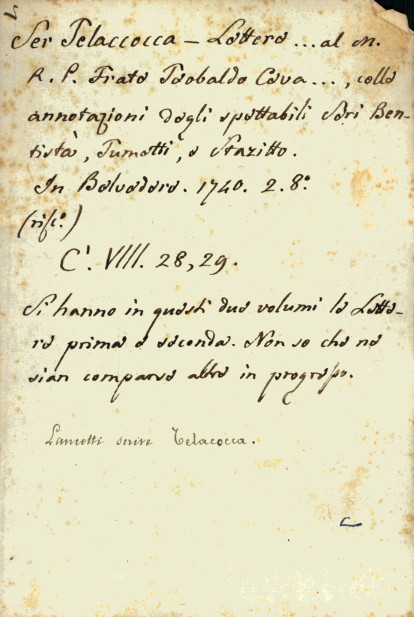 Ser Pelaccocca – Lettera ... al M.
R. P. Frate Teobaldo Ceva ..., colle
annotazioni degli spettabili Seri Ben-
tistà, Tumotti, e Stazitto.
In Belvedere. 1740. 2. 8.º
(rifc.º)
C'. VIII. 28, 29.
Si hanno in questi due volumi le Lette-
re prima e seconda. Non so che ne
sian comparse altre in progresso.
Lancetti scrive Telacocca.